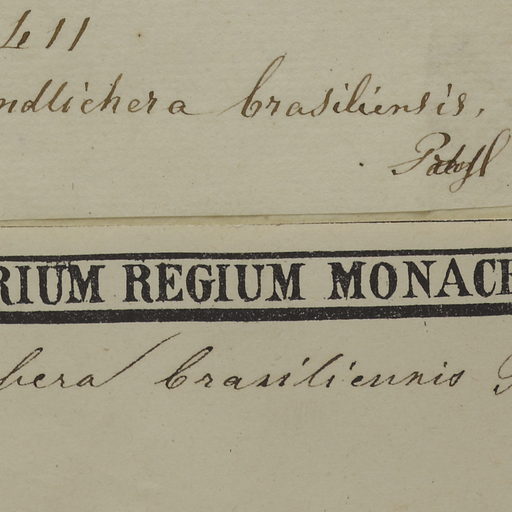 411
ndlichera brasiliensis,
RIUM REGIUM MONAC
hera brasiliennis